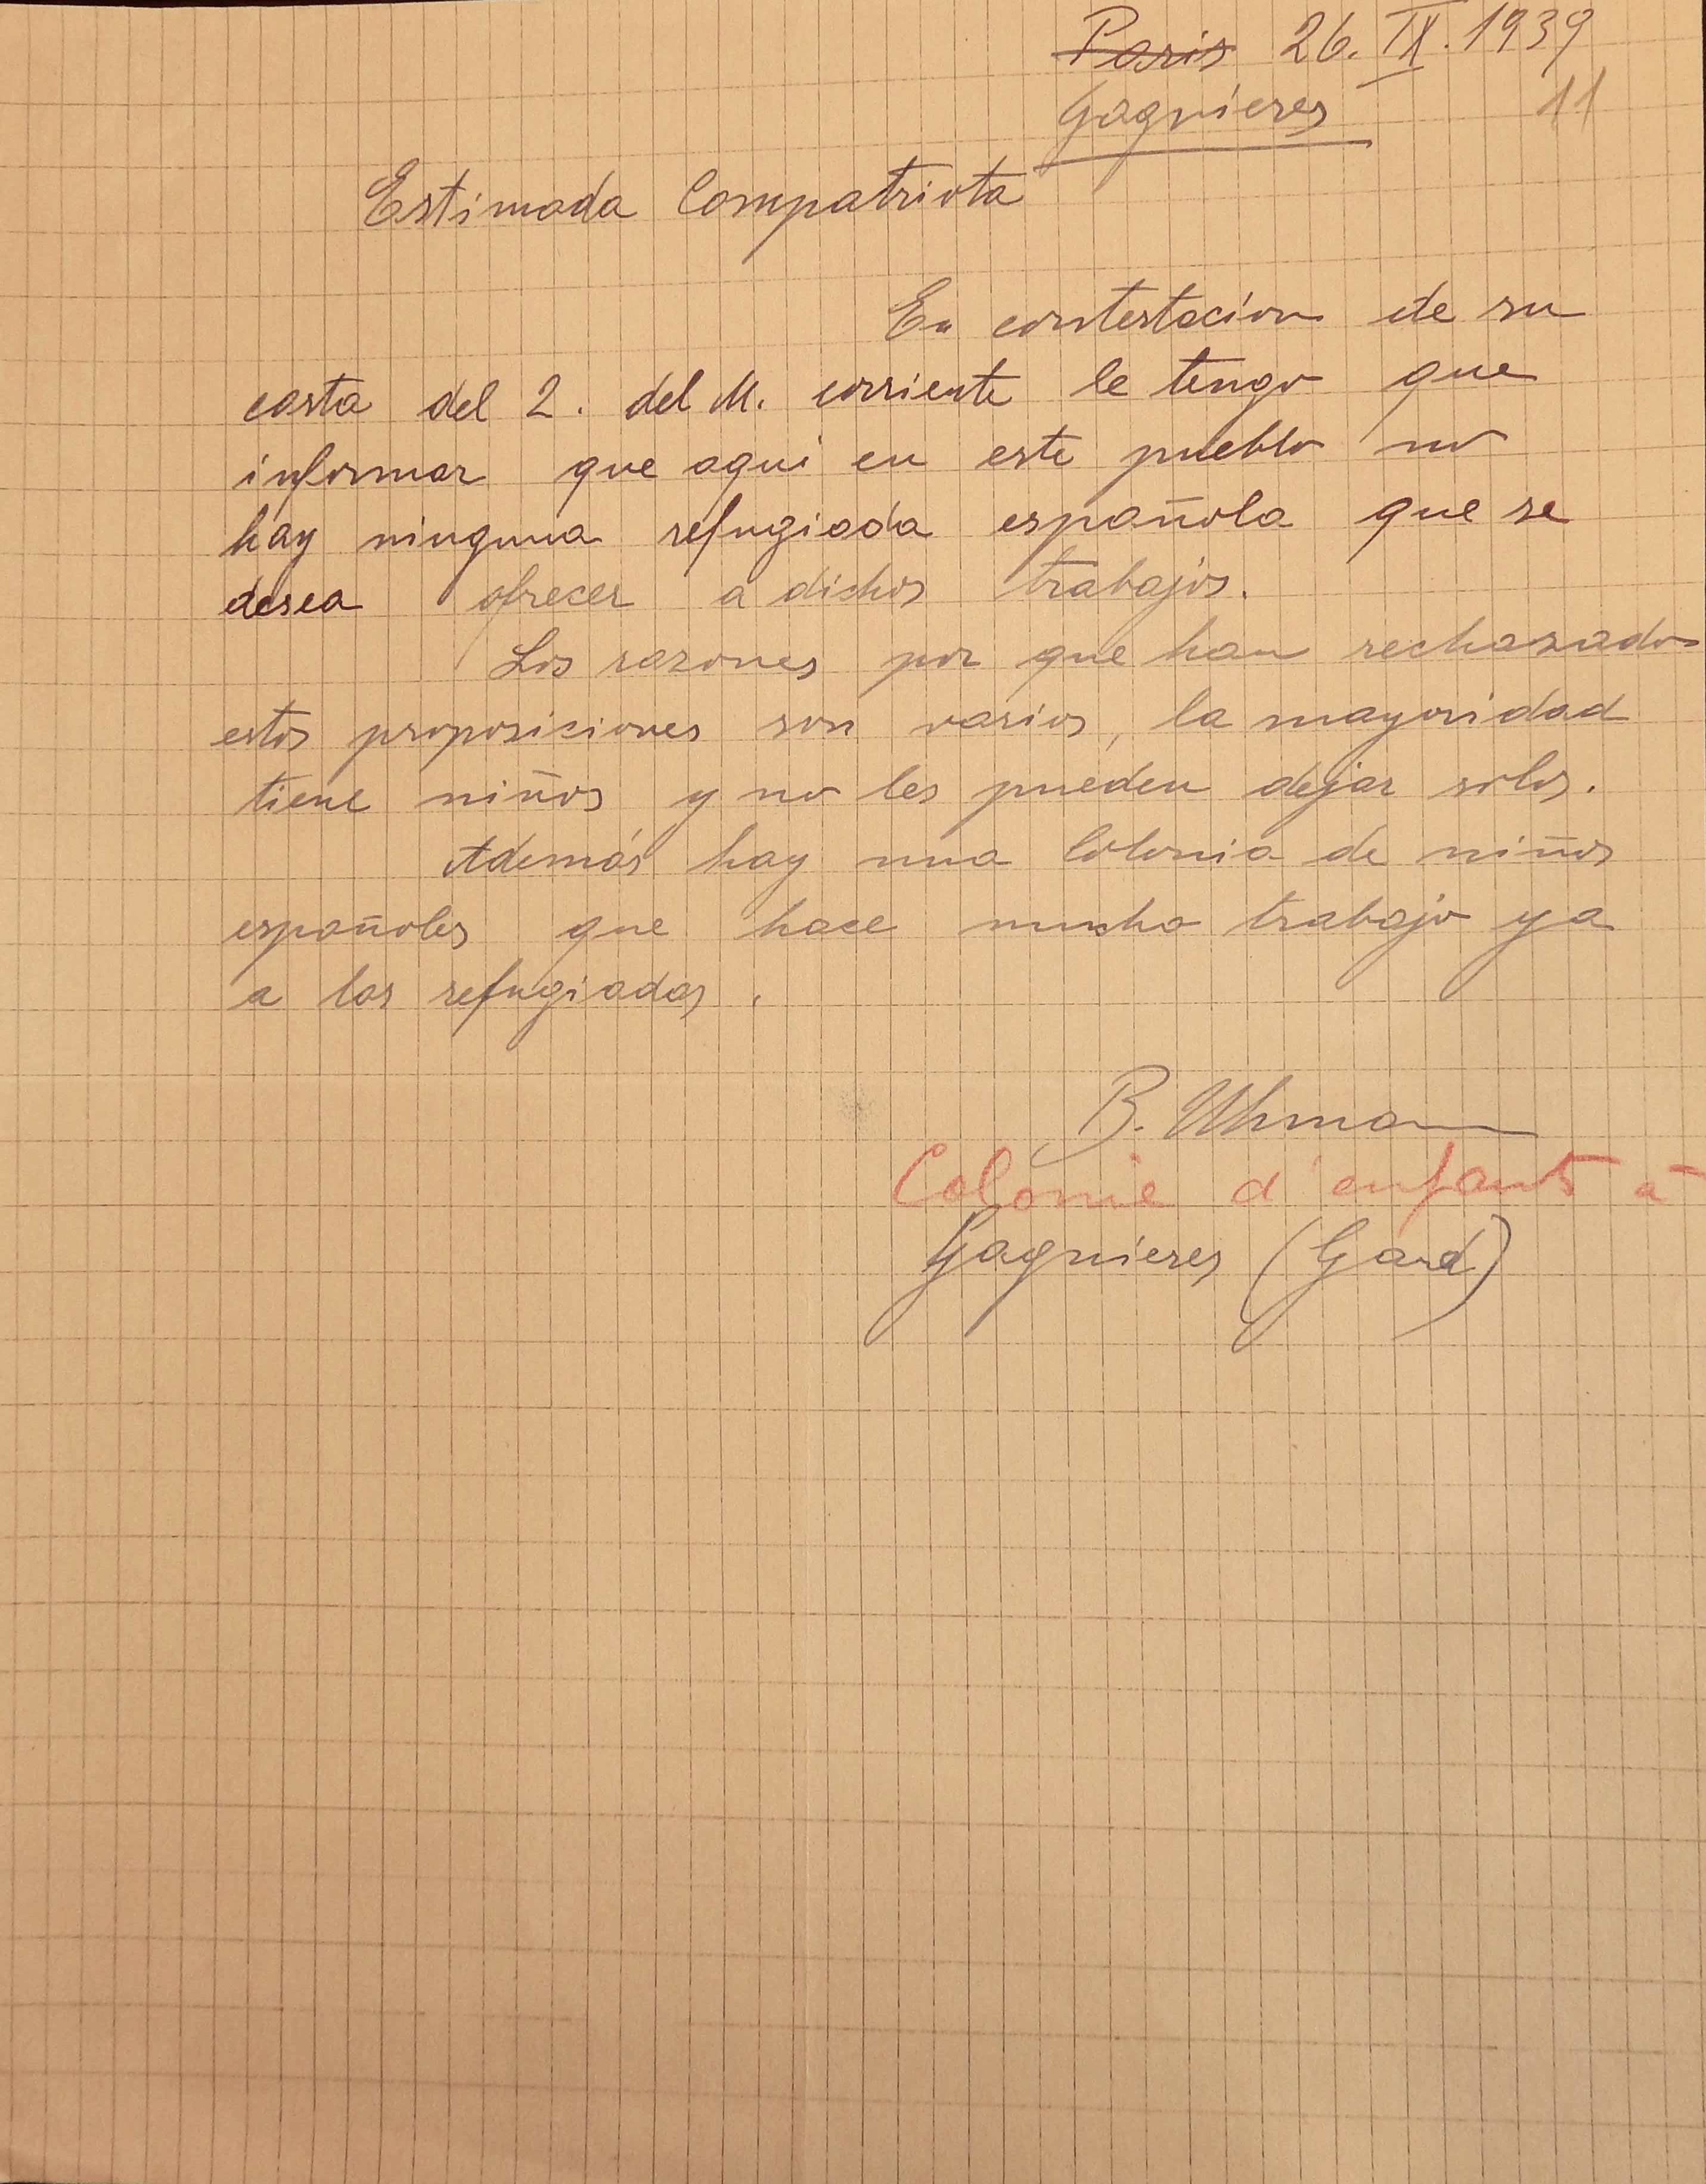 Paris 26. IX. 1939
Gagnieres 11
Estimada Compatriota
En contestacion de su
carta del 2. del M. corriente le tengo que
informar que aqui en este pueblo no
hay ninguna refugiada española que se
desea ofrecer a dichos trabajos.
Las razones por que han rechazados
estos proposiciones son varios, la mayoridad
tiene niños y no les pueden dejar solos.
Además hay una Colonia de niños
españoles que hace mucho trabajo ya
a las refugiadas.
B. Uhmann
Colonie d'enfants à
Gagnieres (Gard)